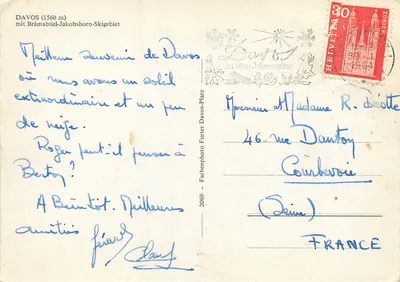 DAVOS (1560 m)
mit Brämabüel-Jakobshorn-Skigebiet
Meilleur souvenir de Davos
où nous avons un soleil
extraordinaire et un peu
de neige.
Roger peut-il penser à
A Bientôt. Meilleures
amitiés Gérard
2069 - Farbenphoto Furter Davos-Platz
Davos
HELVETIA
30
Monsieur et Madame R.
46, rue Danton
Courbevoie
(Seine)
FRANCE